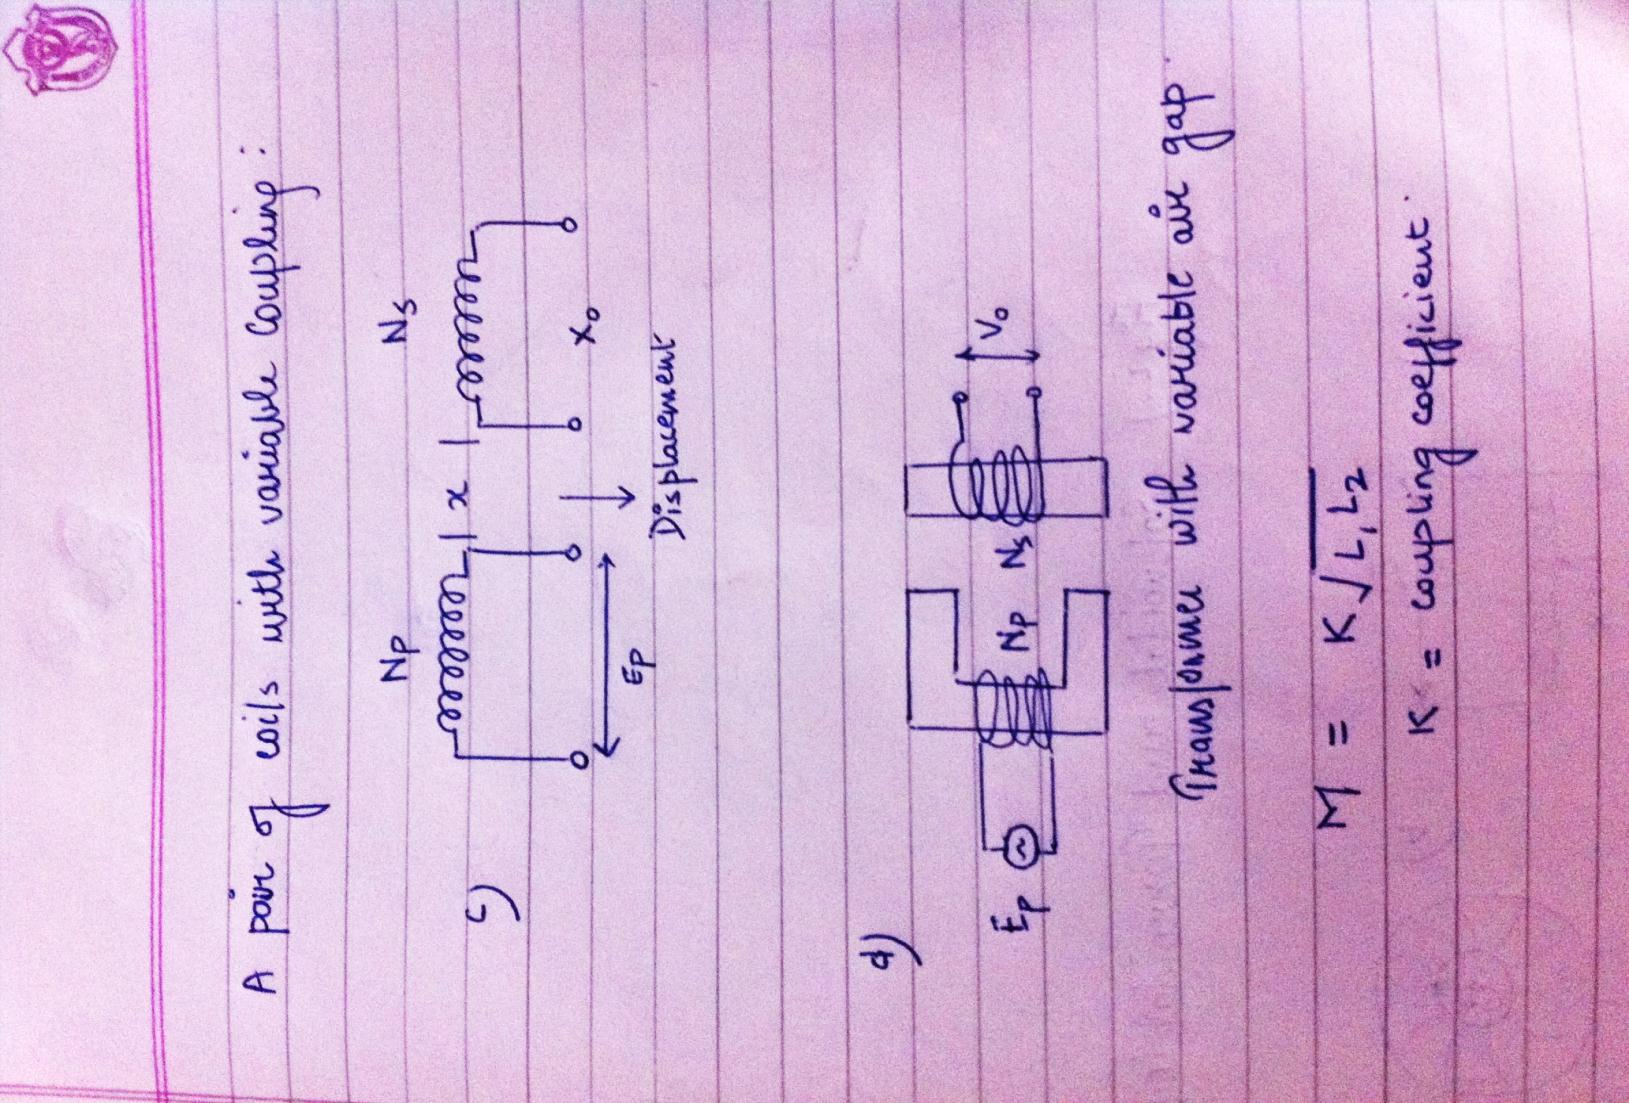 A pair of coils with variable Coupling :
Np Ns
c) x
Ep X₀
Displacement
d)
Ep Np Ns V₀
Transformer with variable air gap.
M = K√L₁L₂
K = coupling coefficient.